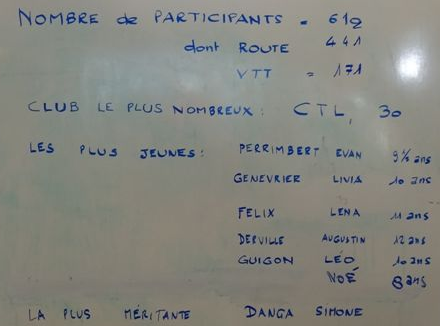 NOMBRE de PARTICIPANTS = 612
dont ROUTE 441
VTT = 171
CLUB LE PLUS NOMBREUX : CTL, 30
LES PLUS JEUNES : PERRIMBERT EVAN 9½ ans
GENEVRIER LIVIA 10 ans
FELIX LENA 11 ans
DERVILLE AUGUSTIN 12 ans
GUIGON LÉO 10 ans
NOÉ 8 ans
LA PLUS MÉRITANTE DANGA SIMONE